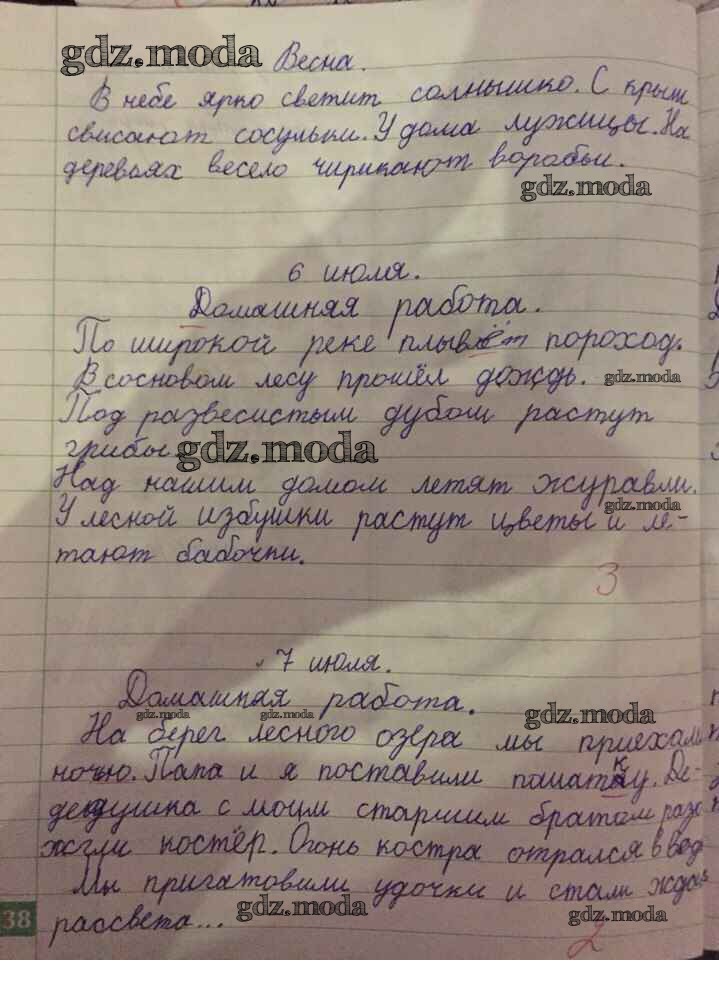 gdz.moda
Весна.
В небе ярко светит солнышко. С крыш
свисают сосульки. У дома лужицы. На
деревьях весело чирикают воробьи.
gdz.moda
6 июля.
Домашняя работа.
По широкой реке плывёт пороход.
В сосновом лесу прошёл дождь. gdz.moda
Под развесистым дубом растут
грибы gdz.moda
Над нашим домом летят журавли.
gdz.moda
У лесной избушки растут цветы и ле-
тают бабочки.
3
7 июля.
Домашняя работа.
gdz.moda gdz.moda gdz.moda
На берег лесного озера мы приехали
ночью. Папа и я поставили палатку. Де-
дедушка с моим старшим братом раз
жгли костёр. Огонь костра отрался в вод
Мы пригатовили удочки и стали жда
рассвета... gdz.moda gdz.moda
38
2